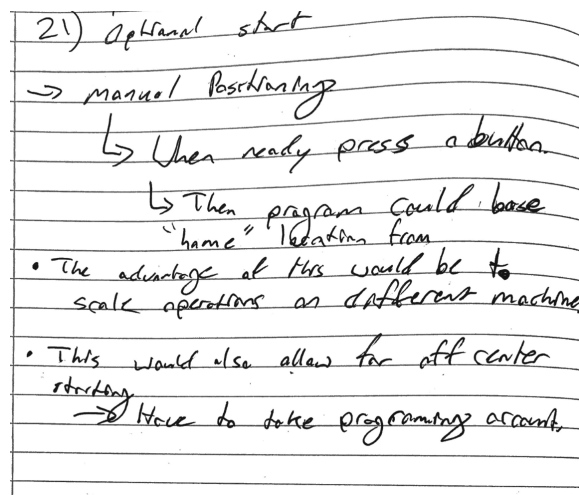 21) Optional start
→ Manual Positioning
↳ When ready press a button.
↳ Then program could base
"home" location from
• The advantage of this would be to
scale operations on different machines
• This would also allow for off center
starting
→ Have to take programing account.